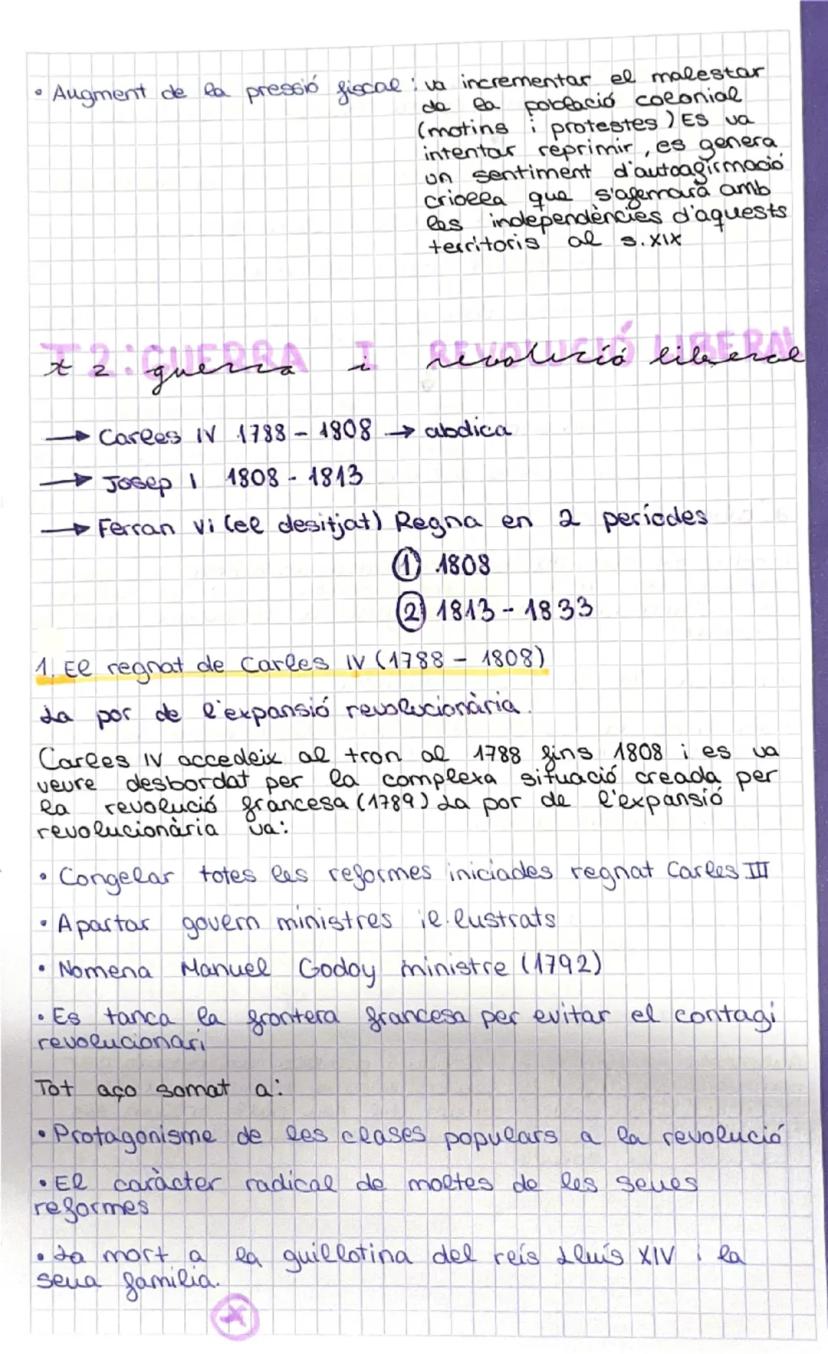 • Augment de la pressió fiscal: va incrementar el malestar
de la població colonial
(motins i protestes) Es va
intentar reprimir, es genera
un sentiment d'autoafirmació
criolla que s'afermarà amb
les independències d'aquests
territoris al s. XIX
T2: GUERRA I REVOLUCIÓ LIBERAL
t 2 guerra i revolució liberal
→ Carles IV 1788 - 1808 → abdica
→ Josep I 1808 - 1813
→ Ferran Vi (el desitjat) Regna en 2 períodes
① 1808
② 1813 - 1833
1. El regnat de Carles IV (1788 - 1808)
La por de l'expansió revolucionària.
Carles IV accedeix al tron al 1788 fins 1808 i es va
veure desbordat per la complexa situació creada per
la revolució francesa (1789) La por de l'expansió
revolucionària va:
• Congelar totes les reformes iniciades regnat Carles III
• Apartar govern ministres il.lustrats
• Nomena Manuel Godoy ministre (1792)
• Es tanca la frontera francesa per evitar el contagi
revolucionari
Tot aço somat a:
• Protagonisme de les clases populars a la revolució
• El caràcter radical de moltes de les seues
reformes
• La mort a la guillotina del reis Lluís XIV i la
seua familia.